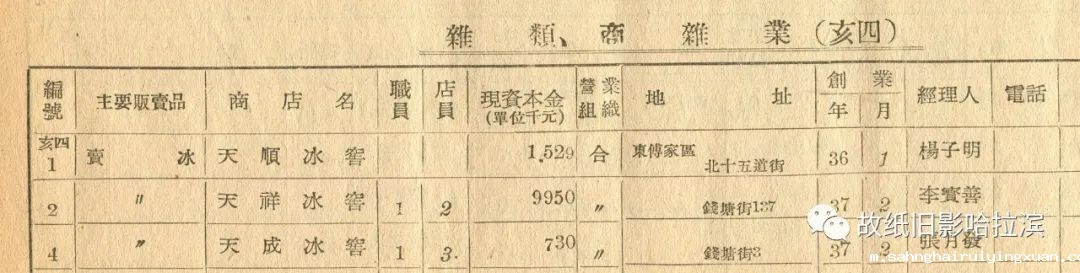 雜類、商雜業(亥四)
編號 主要販賣品 商店名 職員 店員 現資本金(單位千元) 營業組織 地址 創業年月 經理人 電話
亥四1 賣冰 天順冰窖 1,529 合 東傅家區北十五道街 36 1 楊子明
2 〃 天祥冰窖 1 2 9950 〃 錢塘街137 37 2 李寳善
4 〃 天成冰窖 1 3. 730 〃 錢塘街3 37 2 張月發
故纸旧影哈拉滨
m.sahnghairuiyingxuan.com